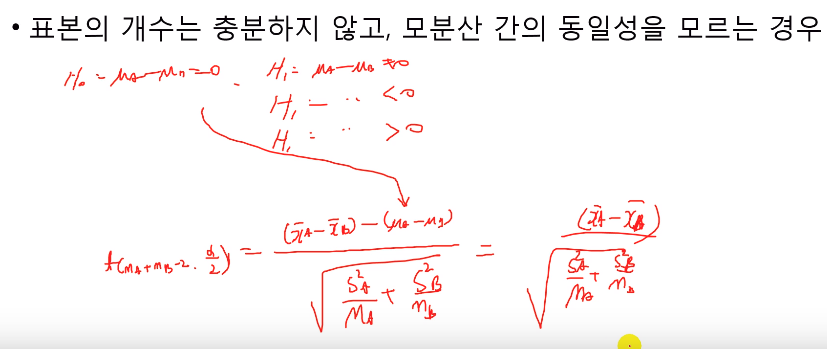 • 표본의 개수는 충분하지 않고, 모분산 간의 동일성을 모르는 경우
H₀ = μA-μB=0 . H₁ = μA-μB ≠0
H₁ = .. <0
H₁ = .. >0
t(nA+nB-2 . α/2) = (x̄A-x̄B)-(μA-μB) / √(S²A/nA + S²B/nB) = (x̄A-x̄B) / √(S²A/nA + S²B/nB)